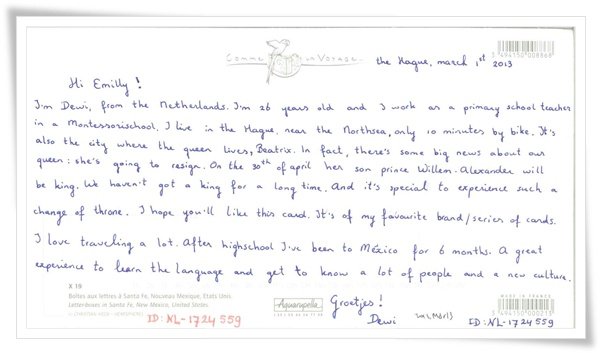 COMME un VOYAGE
3 494150 008868
the Hague, march 1st 2013
Hi Emilly!
I'm Dewi, from the Netherlands. I'm 26 years old and I work as a primary school teacher
in a Montessorischool. I live in the Hague, near the Northsea, only 10 minutes by bike. It's
also the city where the queen lives, Beatrix. In fact, there's some big news about our
queen: she's going to resign. On the 30th of april her son prince Willem-Alexander will
be king. We haven't got a king for a long time. And it's special to experience such a
change of throne. I hope you'll like this card. It's of my favourite brand/series of cards.
I love traveling a lot. After highschool I've been to México for 6 months. A great
experience to learn the language and get to know a lot of people and a new culture.
X 19
Boîtes aux lettres à Santa Fe, Nouveau Mexique, Etats Unis.
Letterboxes in Santa Fe, New Mexico, United States
Aquarupella
MADE IN FRANCE
3 494150 000213
Groetjes!
Dewi
ID: NL-1724559
ID: NL-1724559